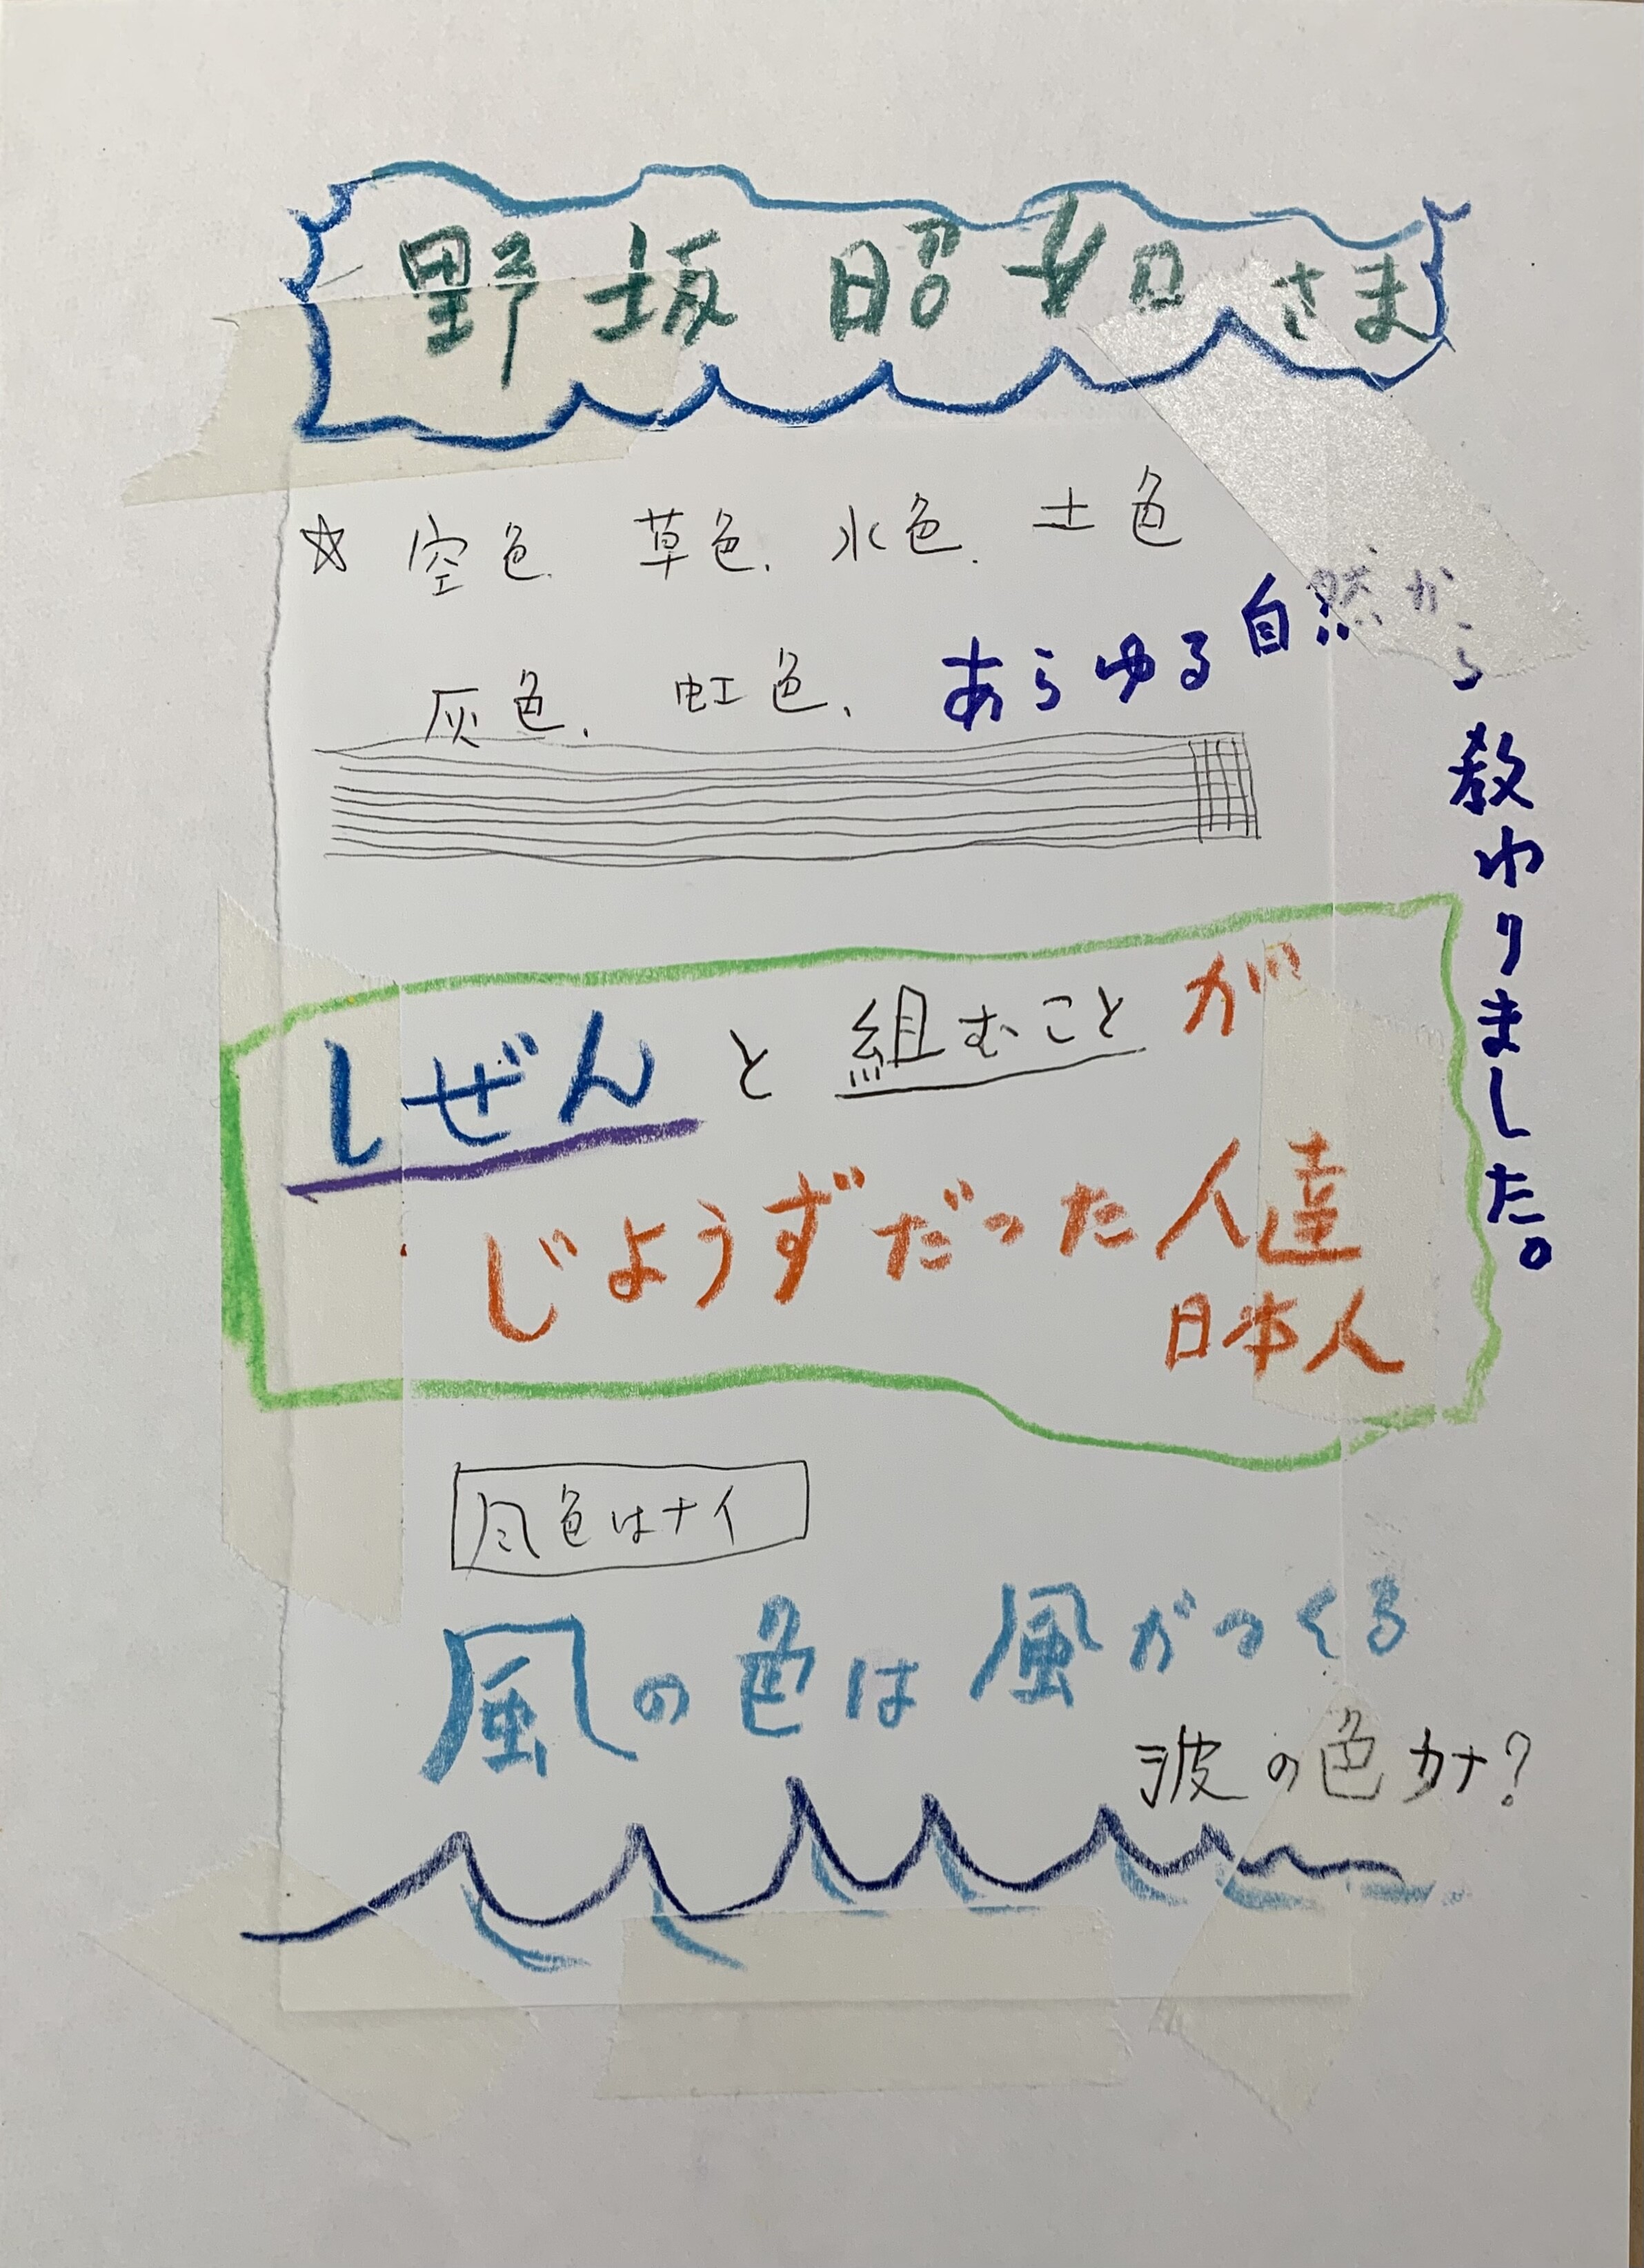 野坂昭如さま
☆ 空色、草色、水色、土色
灰色、虹色、あらゆる自然から教わりました。
しぜんと組むことが
じようずだった人達
日本人
風色はナイ
風の色は風がつくる
波の色カナ?